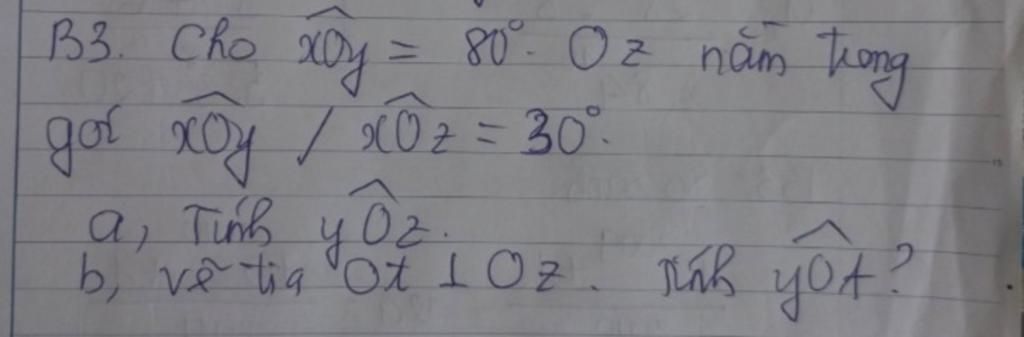 B3. Cho xOy = 80°. Oz nằm trong
goí xOy / xOz = 30°.
a, Tính yOz.
b, vẽ tia Ot ⊥ Oz. Tính yOt?